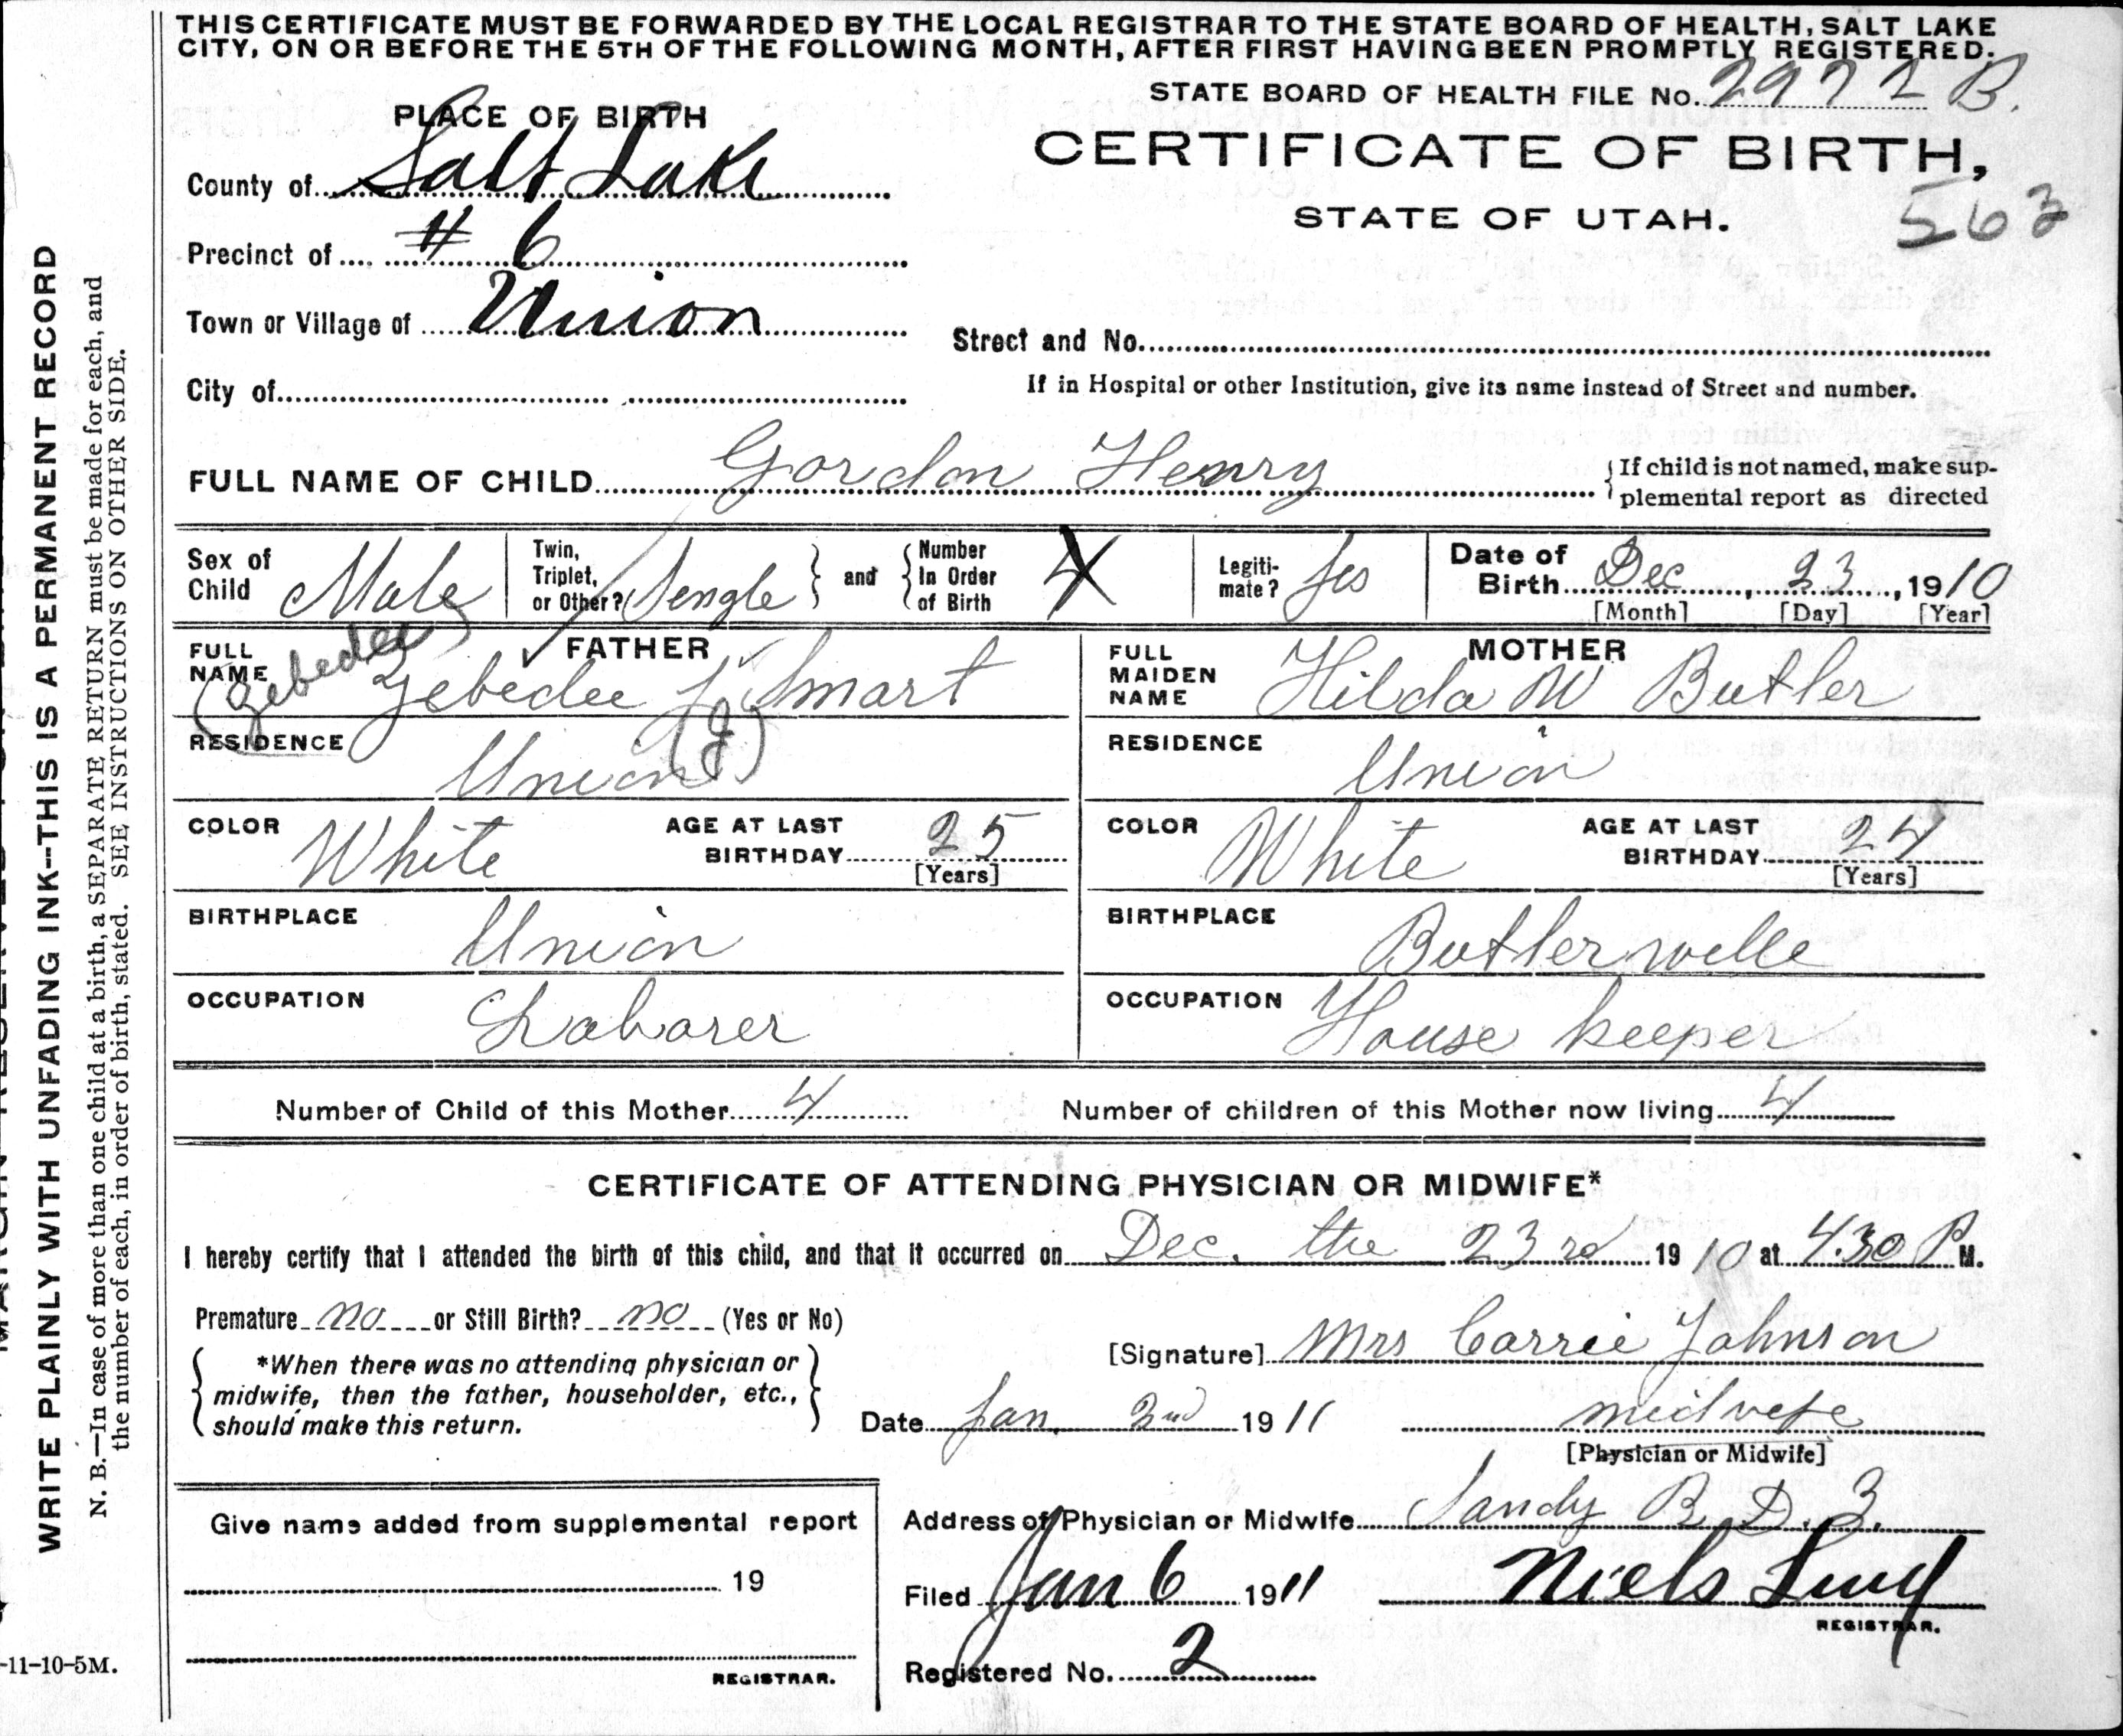 THIS CERTIFICATE MUST BE FORWARDED BY THE LOCAL REGISTRAR TO THE STATE BOARD OF HEALTH, SALT LAKE
CITY, ON OR BEFORE THE 5TH OF THE FOLLOWING MONTH, AFTER FIRST HAVING BEEN PROMPTLY REGISTERED.
STATE BOARD OF HEALTH FILE No. 2972 B.
PLACE OF BIRTH
CERTIFICATE OF BIRTH,
County of Salt Lake
STATE OF UTAH.
563
Precinct of # 6
Town or Village of Union
Street and No.
City of
If in Hospital or other Institution, give its name instead of Street and number.
FULL NAME OF CHILD Gordon Henry
{ If child is not named, make sup-
plemental report as directed
Sex of Child Male
Twin, Triplet, or Other? Sengle } and { Number In Order of Birth 4
Legiti-mate? Yes
Date of Birth Dec, 23, 1910
[Month] [Day] [Year]
FATHER
MOTHER
FULL NAME Zebedee J Smart
(Zebedee)
(J)
FULL MAIDEN NAME Hilda M Butler
RESIDENCE Union
RESIDENCE Union
COLOR White
AGE AT LAST BIRTHDAY 25
[Years]
COLOR White
AGE AT LAST BIRTHDAY 24
[Years]
BIRTHPLACE Union
BIRTHPLACE Butlerwille
OCCUPATION Laborer
OCCUPATION House keeper
Number of Child of this Mother 4
Number of children of this Mother now living 4
CERTIFICATE OF ATTENDING PHYSICIAN OR MIDWIFE*
I hereby certify that I attended the birth of this child, and that it occurred on Dec. the 23rd 1910 at 4.30 P M.
Premature no or Still Birth? no (Yes or No)
[Signature] Mrs Carrie Johnson
{ *When there was no attending physician or
midwife, then the father, householder, etc.,
should make this return. }
Date Jan. 2nd 1911
midwefe
[Physician or Midwife]
Give name added from supplemental report
19
REGISTRAR.
Address of Physician or Midwife Sandy R. D. 3.
Filed Jan 6 1911
Niels Lind
REGISTRAR.
Registered No. 2
WRITE PLAINLY WITH UNFADING INK--THIS IS A PERMANENT RECORD
N. B.—In case of more than one child at a birth, a SEPARATE RETURN must be made for each, and
the number of each, in order of birth, stated. SEE INSTRUCTIONS ON OTHER SIDE.
-11-10-5M.